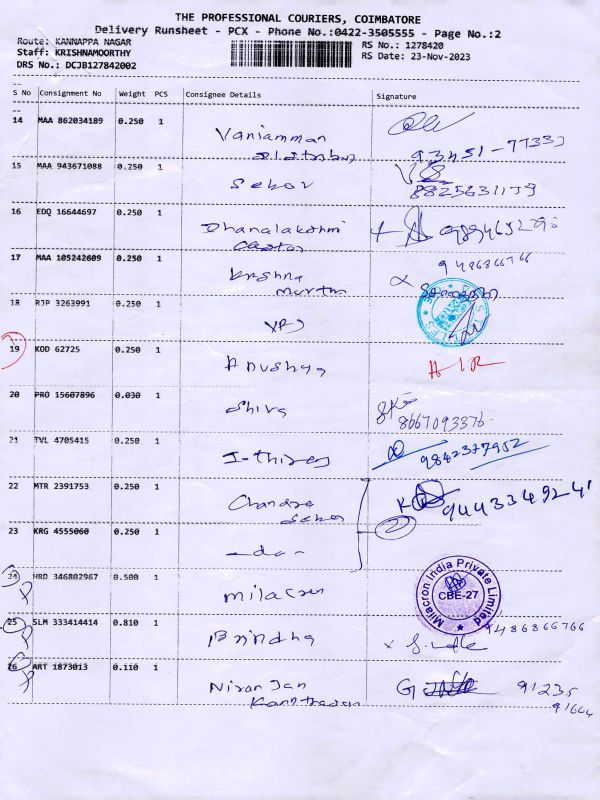 THE PROFESSIONAL COURIERS, COIMBATORE
Delivery Runsheet - PCX - Phone No.:0422-3505555 - Page No.:2
Route: KANNAPPA NAGAR
RS No.: 1278420
Staff: KRISHNAMOORTHY
RS Date: 23-Nov-2023
DRS No.: DCJB127842002
S No Consignment No Weight PCS Consignee Details Signature
14 MAA 862034189 0.250 1 Vaniamman
93451-77333
15 MAA 943671088 0.250 1 Sekar
8825631139
16 EDQ 16644697 0.250 1 Dhanalakshmi
17 MAA 105242609 0.250 1 Krishna 9486866766
18 RJP 3263991 0.250 1 VPJ
19 KOD 62725 0.250 1 Anushya
20 PRO 15607896 0.030 1 Shiva
8667093376
21 TVL 4705415 0.250 1 9842377952
22 MTR 2391753 0.250 1 Chandra
Sekar 9443349241
23 KRG 4555060 0.250 1 -do- 2
24 HRD 346802967 0.500 1 Milacron
Milacron India Private Limited
CBE-27
25 SLM 333414414 0.810 1 Brindha 9486866766
26 ART 1873013 0.110 1 Niranjan 91235
91644